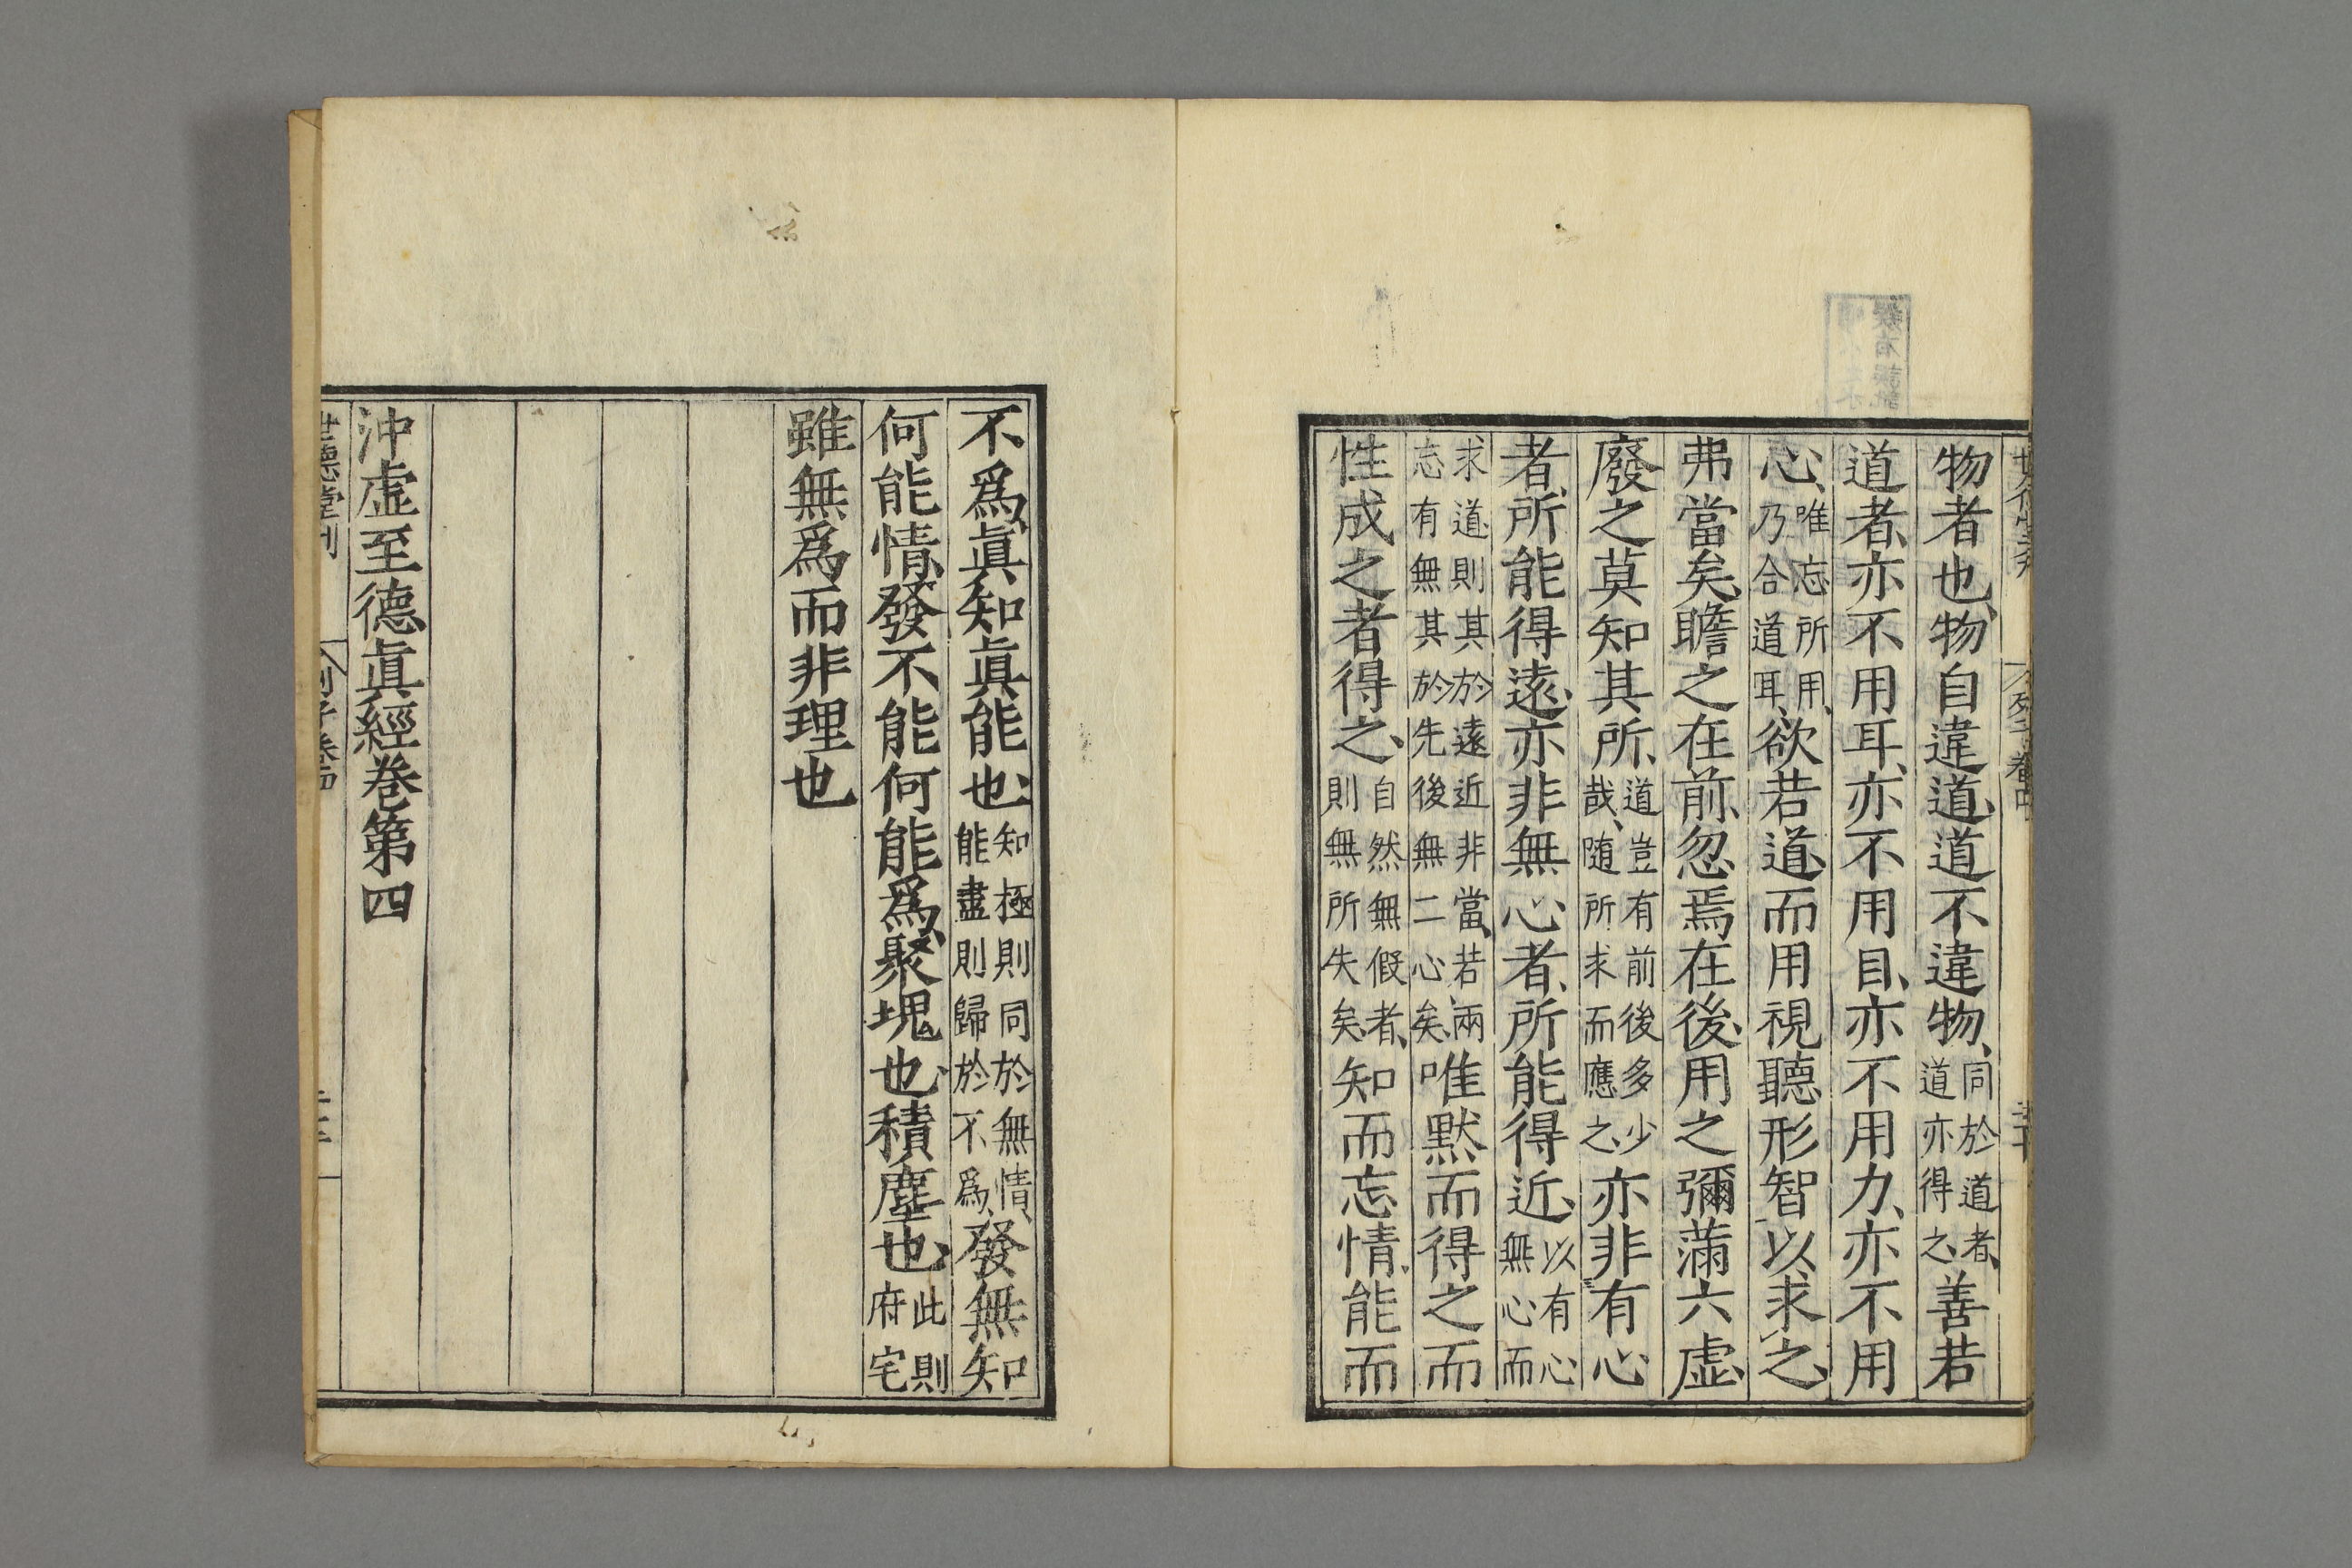 物者也、物自違道、道不違物、同於道者、道亦得之、善若
道者、亦不用耳、亦不用目、亦不用力、亦不用
心、唯忘所用、乃合道耳、欲若道、而用視聽形智以求之、
弗當矣、瞻之在前、忽焉在後、用之彌滿六虛、
廢之莫知其所、道豈有前後多少哉、随所求而應之、亦非有心
者、所能得遠、亦非無心者、所能得近、以有心無心而
求道、則其於遠近非當、若兩忘有無、其於先後無二心矣、唯默而得之、而
性成之者得之、自然無假者、則無所失矣、知而忘情、能而
不爲、眞知眞能也、知極則同於無情、能盡則歸於不爲、發無知
何能情、發不能何能爲、聚塊也、積塵也、此則府宅
雖無爲而非理也
沖虛至德眞經卷第四
世德堂刊
列子卷四